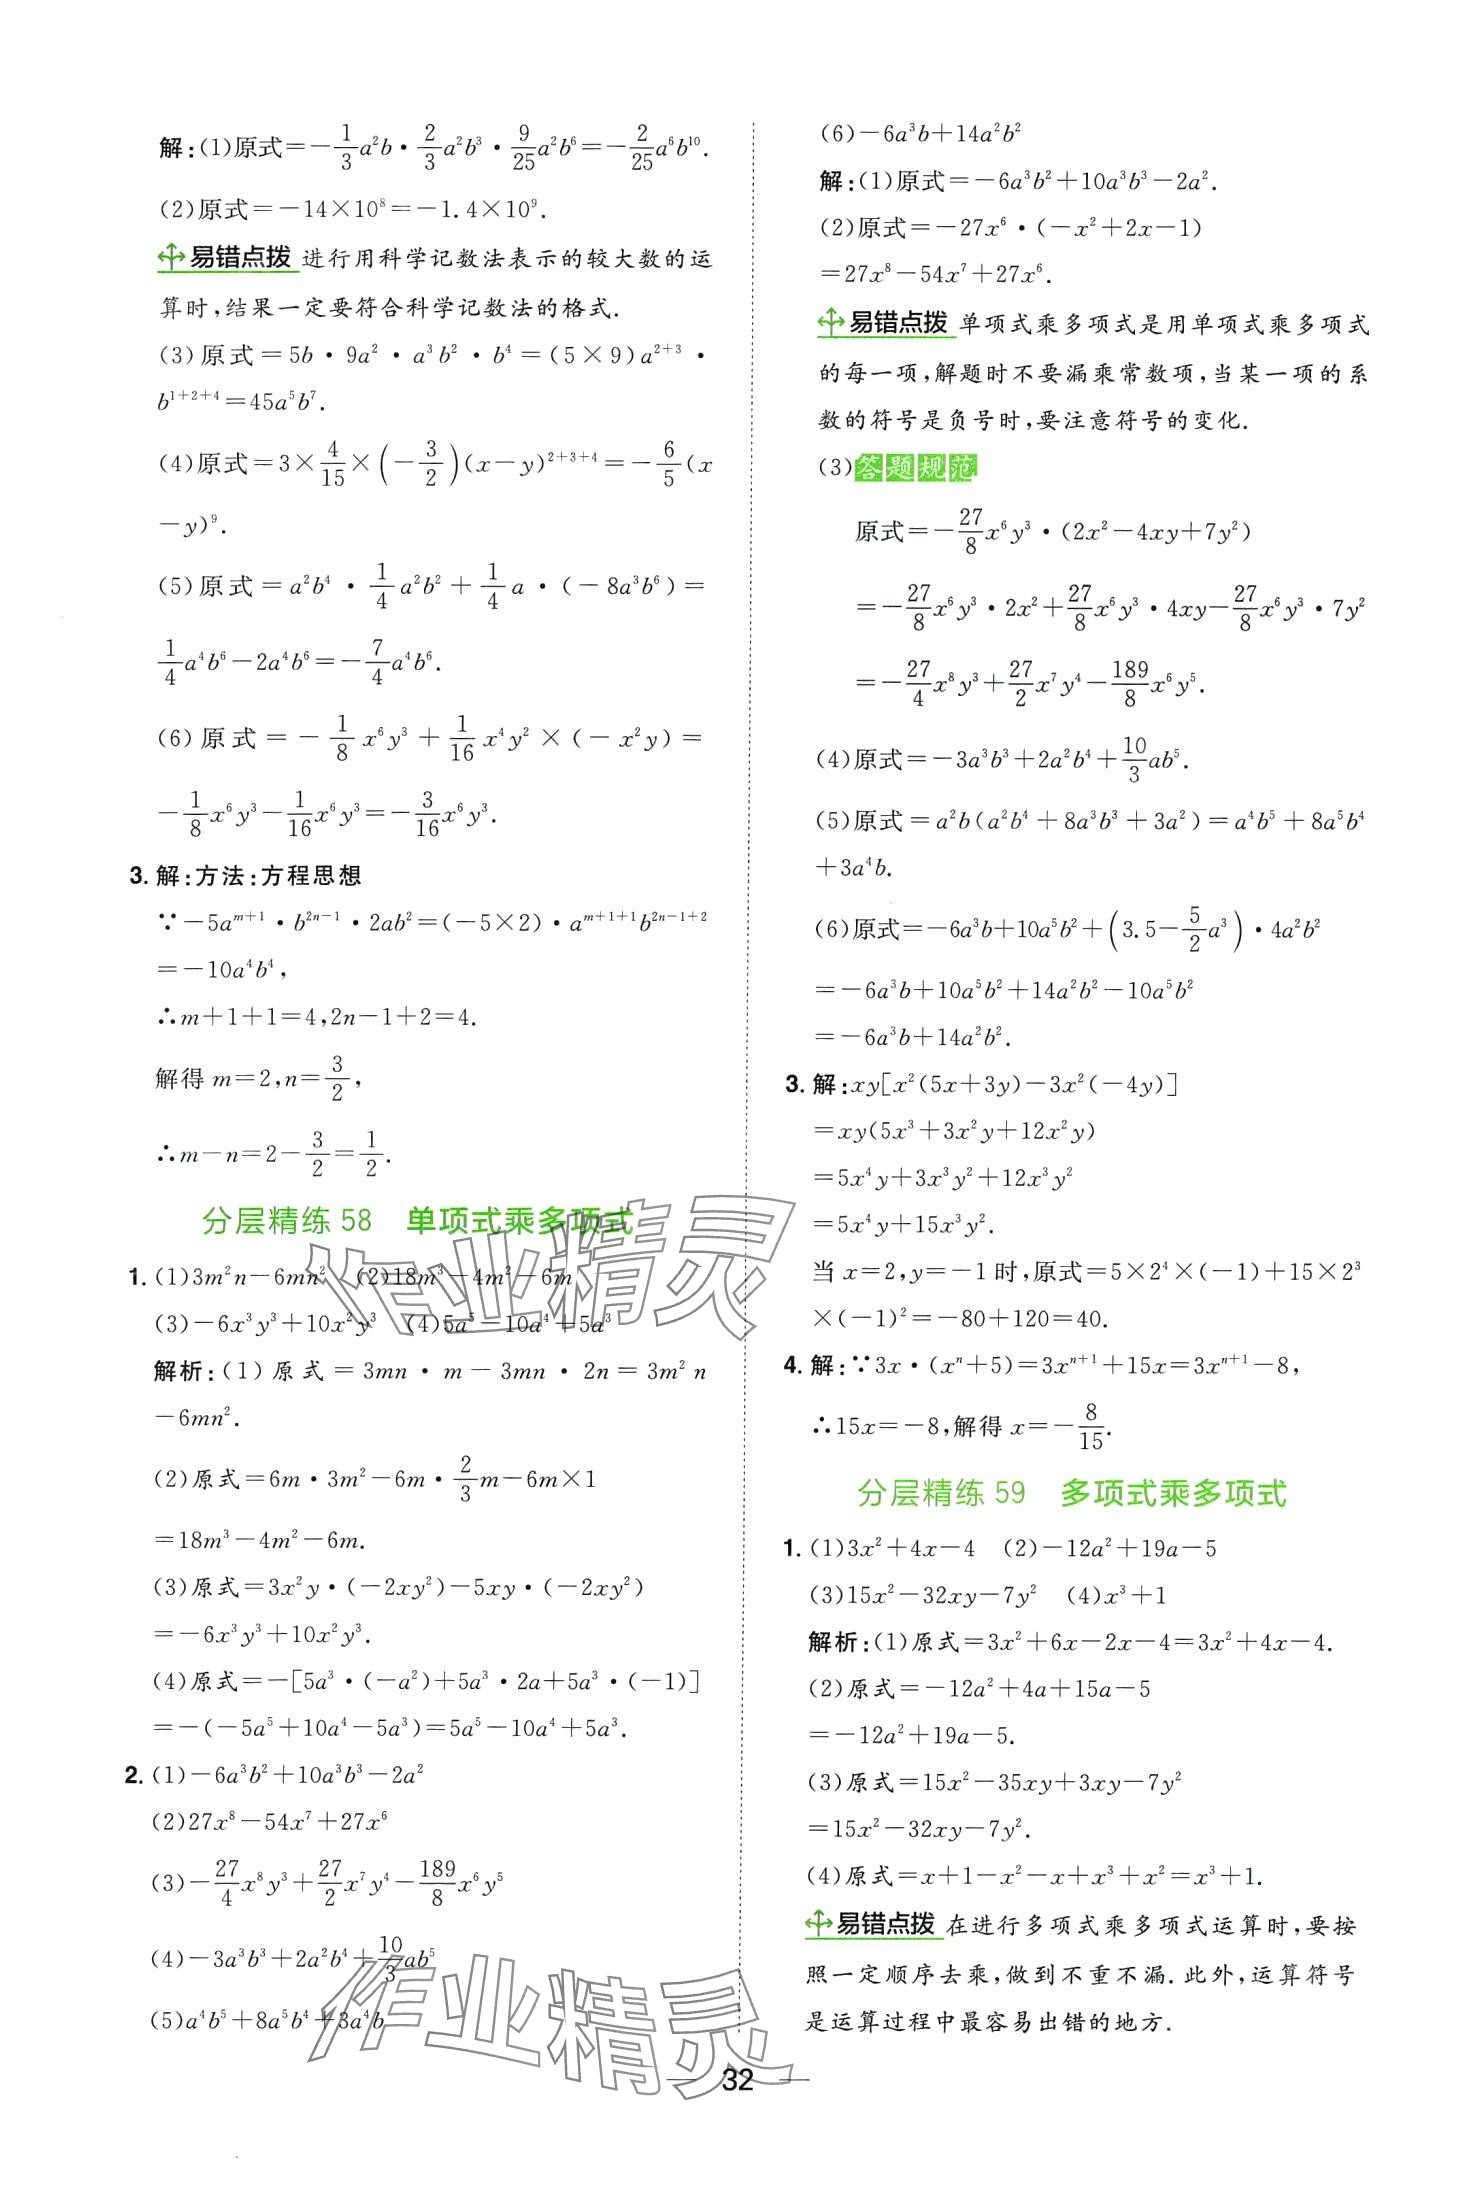 解:(1)原式=-1/3a²b·2/3a²b³·9/25a²b⁶=-2/25a⁶b¹⁰.
(2)原式=-14×10⁸=-1.4×10⁹.
易错点拨 进行用科学记数法表示的较大数的运
算时,结果一定要符合科学记数法的格式.
(3)原式=5b·9a²·a³b²·b⁴=(5×9)a²⁺³·
b¹⁺²⁺⁴=45a⁵b⁷.
(4)原式=3×4/15×(-3/2)(x-y)²⁺³⁺⁴=-6/5(x
-y)⁹.
(5)原式=a²b⁴·1/4a²b²+1/4a·(-8a³b⁶)=
1/4a⁴b⁶-2a⁴b⁶=-7/4a⁴b⁶.
(6)原式=-1/8x⁶y³+1/16x⁴y²×(-x²y)=
-1/8x⁶y³-1/16x⁶y³=-3/16x⁶y³.
3. 解:方法:方程思想
∵-5aᵐ⁺¹·b²ⁿ⁻¹·2ab²=(-5×2)·aᵐ⁺¹⁺¹b²ⁿ⁻¹⁺²
=-10a⁴b⁴,
∴m+1+1=4,2n-1+2=4.
解得m=2,n=3/2,
∴m-n=2-3/2=1/2.
分层精练58 单项式乘多项式
1. (1)3m²n-6mn² (2)18m³-4m²-6m
(3)-6x³y³+10x²y³ (4)5a⁵-10a⁴+5a³
解析:(1)原式=3mn·m-3mn·2n=3m²n
-6mn².
(2)原式=6m·3m²-6m·2/3m-6m×1
=18m³-4m²-6m.
(3)原式=3x²y·(-2xy²)-5xy·(-2xy²)
=-6x³y³+10x²y³.
(4)原式=-[5a³·(-a²)+5a³·2a+5a³·(-1)]
=-(-5a⁵+10a⁴-5a³)=5a⁵-10a⁴+5a³.
2. (1)-6a³b²+10a³b³-2a²
(2)27x⁸-54x⁷+27x⁶
(3)-27/4x⁸y³+27/2x⁷y⁴-189/8x⁶y⁵
(4)-3a³b³+2a²b⁴+10/3ab⁵
(5)a⁴b⁵+8a⁵b⁴+3a⁴b
(6)-6a³b+14a²b²
解:(1)原式=-6a³b²+10a³b³-2a².
(2)原式=-27x⁶·(-x²+2x-1)
=27x⁸-54x⁷+27x⁶.
易错点拨 单项式乘多项式是用单项式乘多项式
的每一项,解题时不要漏乘常数项,当某一项的系
数的符号是负号时,要注意符号的变化.
(3)答题规范
原式=-27/8x⁶y³·(2x²-4xy+7y²)
=-27/8x⁶y³·2x²+27/8x⁶y³·4xy-27/8x⁶y³·7y²
=-27/4x⁸y³+27/2x⁷y⁴-189/8x⁶y⁵.
(4)原式=-3a³b³+2a²b⁴+10/3ab⁵.
(5)原式=a²b(a²b⁴+8a³b³+3a²)=a⁴b⁵+8a⁵b⁴
+3a⁴b.
(6)原式=-6a³b+10a⁵b²+(3.5-5/2a³)·4a²b²
=-6a³b+10a⁵b²+14a²b²-10a⁵b²
=-6a³b+14a²b².
3. 解:xy[x²(5x+3y)-3x²(-4y)]
=xy(5x³+3x²y+12x²y)
=5x⁴y+3x³y²+12x³y²
=5x⁴y+15x³y².
当x=2,y=-1时,原式=5×2⁴×(-1)+15×2³
×(-1)²=-80+120=40.
4. 解:∵3x·(xⁿ+5)=3xⁿ⁺¹+15x=3xⁿ⁺¹-8,
∴15x=-8,解得x=-8/15.
分层精练59 多项式乘多项式
1. (1)3x²+4x-4 (2)-12a²+19a-5
(3)15x²-32xy-7y² (4)x³+1
解析:(1)原式=3x²+6x-2x-4=3x²+4x-4.
(2)原式=-12a²+4a+15a-5
=-12a²+19a-5.
(3)原式=15x²-35xy+3xy-7y²
=15x²-32xy-7y².
(4)原式=x+1-x²-x+x³+x²=x³+1.
易错点拨 在进行多项式乘多项式运算时,要按
照一定顺序去乘,做到不重不漏.此外,运算符号
是运算过程中最容易出错的地方.
作业精灵
作业精灵
32